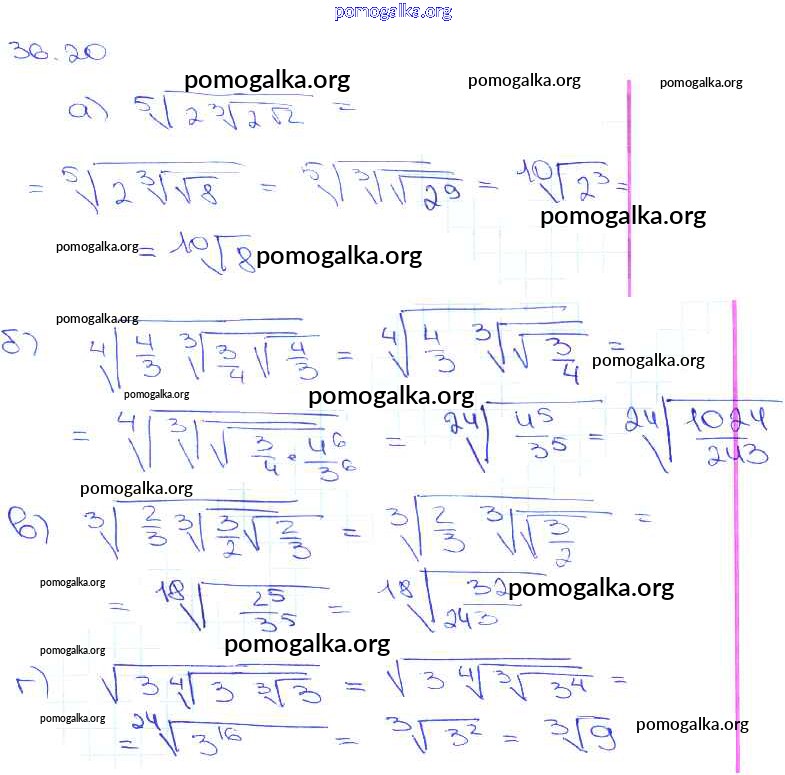 pomogalka.org
36.20
pomogalka.org pomogalka.org pomogalka.org
а) ⁵√(2 ³√(2√2)) =
= ⁵√(2 ³√(√8)) = ⁵√(³√(√(2⁹))) = ¹⁰√(2³) =
pomogalka.org
pomogalka.org = ¹⁰√8 pomogalka.org
pomogalka.org
б) ⁴√(4/3 ³√(3/4 √(4/3))) = ⁴√(4/3 ³√(√(3/4))) =
pomogalka.org
pomogalka.org pomogalka.org
= ⁴√(³√(√(3/4 · 4⁶/3⁶))) = ²⁴√(4⁵/3⁵) = ²⁴√(1024/243)
pomogalka.org
в) ³√(2/3 ³√(3/2 √(2/3))) = ³√(2/3 ³√(√(3/2))) =
pomogalka.org pomogalka.org
= ¹⁸√(2⁵/3⁵) = ¹⁸√(32/243)
pomogalka.org pomogalka.org
г) √(3 ⁴√(3 ³√3)) = √(3 ⁴√(³√(3⁴))) =
pomogalka.org pomogalka.org
= ²⁴√(3¹⁶) = ³√(3²) = ³√9